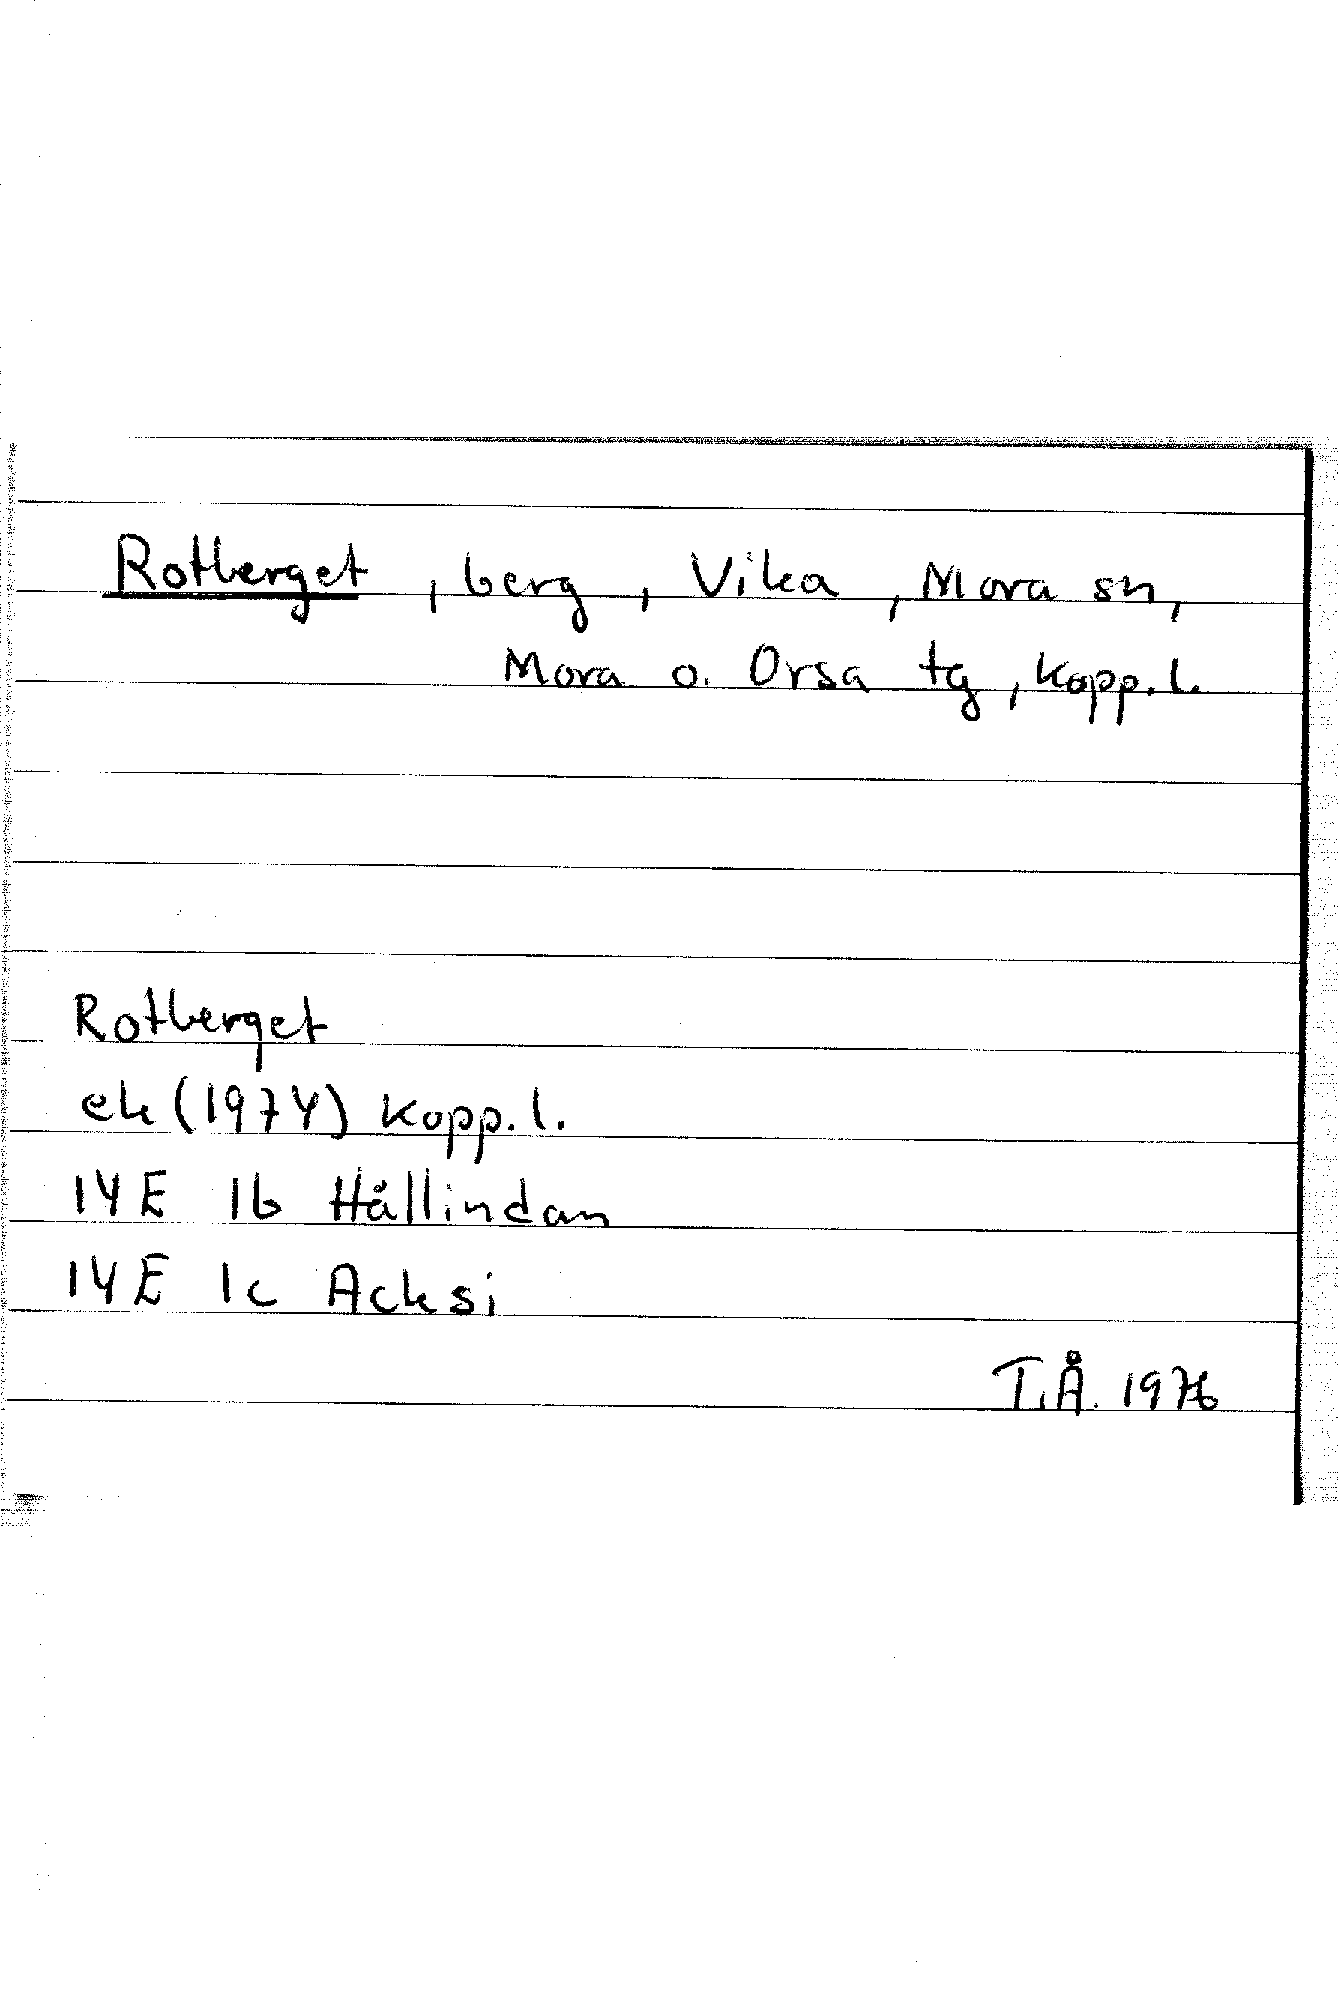 Rotberget, berg, Vika, Mora sn,
Mora o. Orsa tg, Kopp. l.
Rotberget
ek (1974) Kopp. l.
14E 1b Hållindan
14E 1c Acksi
T.Å. 1976